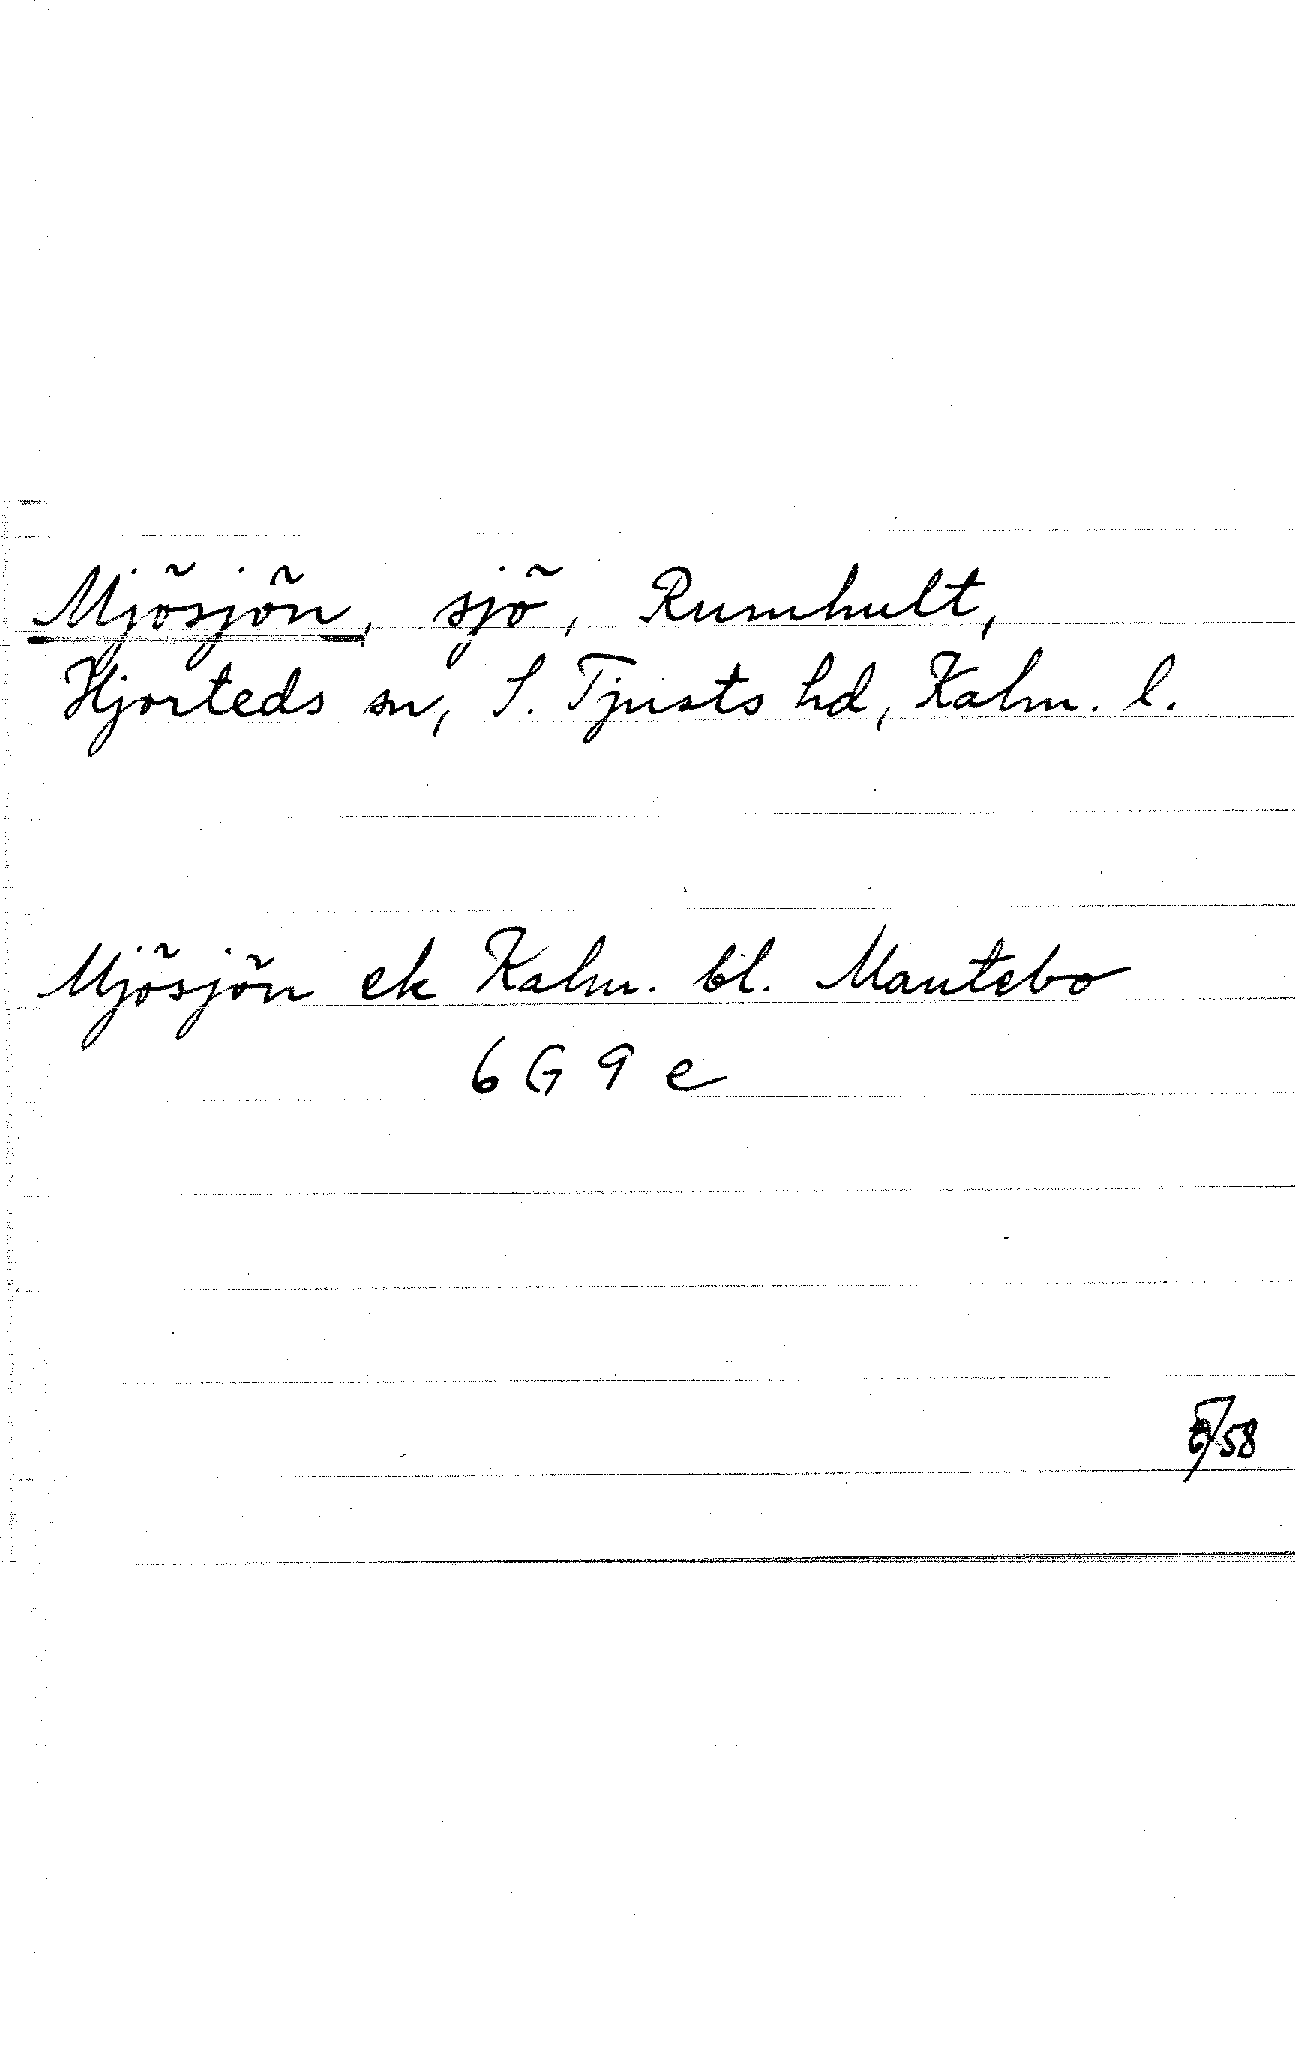 Mjösjön, sjö, Rumhult,
Hjorteds sn, S. Tjusts hd, Kalm. l.
Mjösjön ek Kalm. bl. Mantebo
6 G 9 e